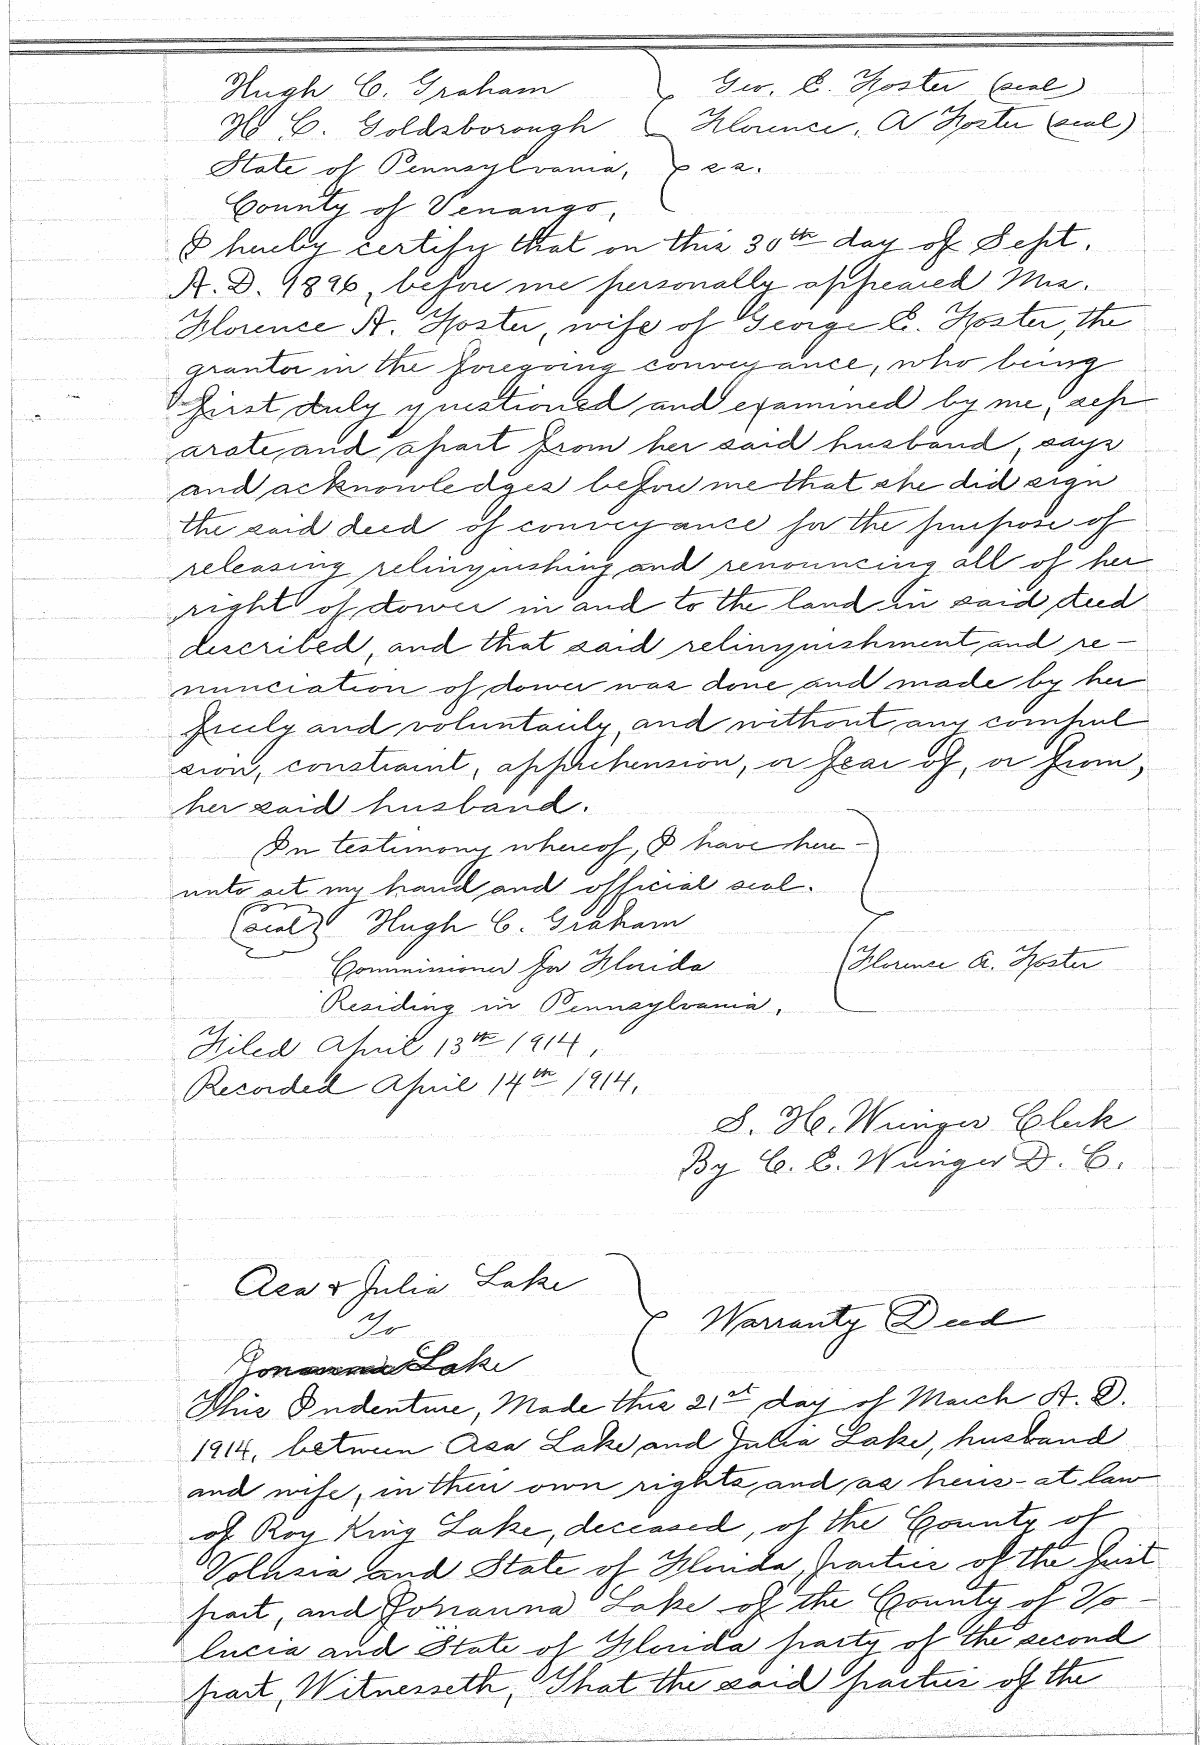 Hugh C. Graham Geo. E. Foster (seal)
H C. Goldsborough Florence. A Foster (seal)
State of Pennsylvania, s.s.
County of Venango,
I hereby certify that on this 30th day of Sept.
A.D. 1896, before me personally appeared Mrs.
Florence A. Foster, wife of George E. Foster, the
grantor in the foregoing conveyance, who being
first duly questioned and examined by me, sep
arate and apart from her said husband, says
and acknowledges before me that she did sign
the said deed of conveyance for the purpose of
releasing relinquishing and renouncing all of her
right of dower in and to the land in said deed
described, and that said relinquishment and re-
nunciation of dower was done and made by her
freely and voluntarily, and without any compul
sion, constraint, apprehension, or fear of, or from,
her said husband.
In testimony whereof, I have here-
unto set my hand and official seal.
(seal) Hugh C. Graham
Commissioner for Florida Florence A. Foster
Residing in Pennsylvania.
Filed April 13th 1914,
Recorded April 14th 1914.
S. H. Clerk
By C. E. D. C.
Asa & Julia Lake
To Warranty Deed
Lake
This Indenture, Made this 21st day of March A.D.
1914, between Asa Lake and Julia Lake, husband
and wife, in their own rights and as heirs-at law
of Roy King Lake, deceased, of the County of
Volusia and State of Florida, parties of the first
part, and Johanna Lake of the County of Vo-
lucia and State of Florida party of the second
part, Witnesseth, That the said parties of the